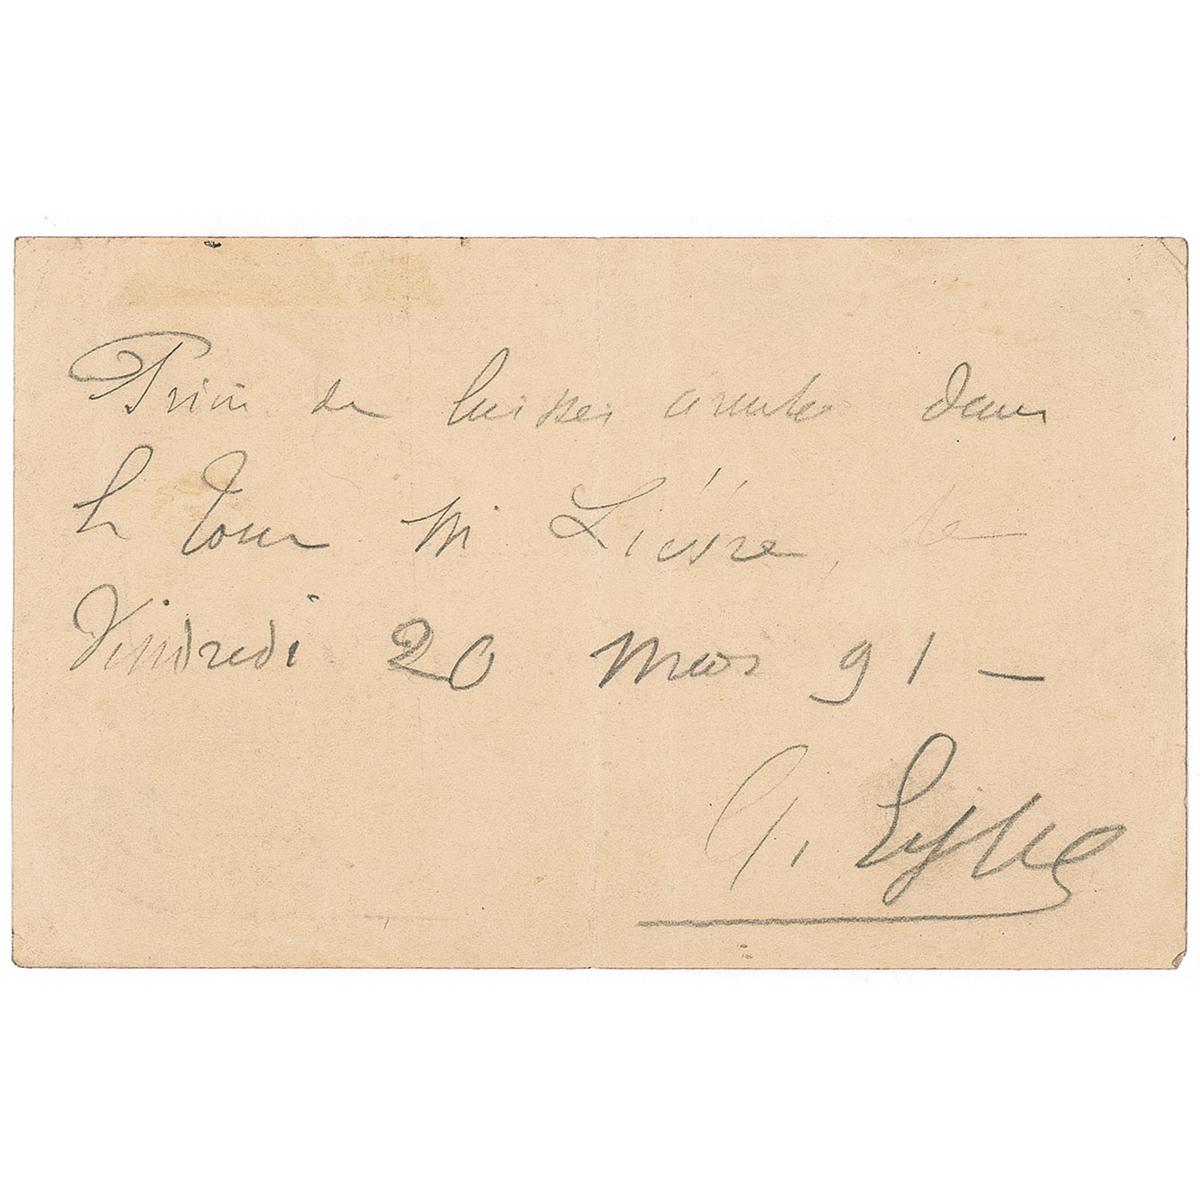 Prière de laisser monter dans
la Tour M. Lièvre, le
Vendredi 20 Mars 91 —
G. Eiffel